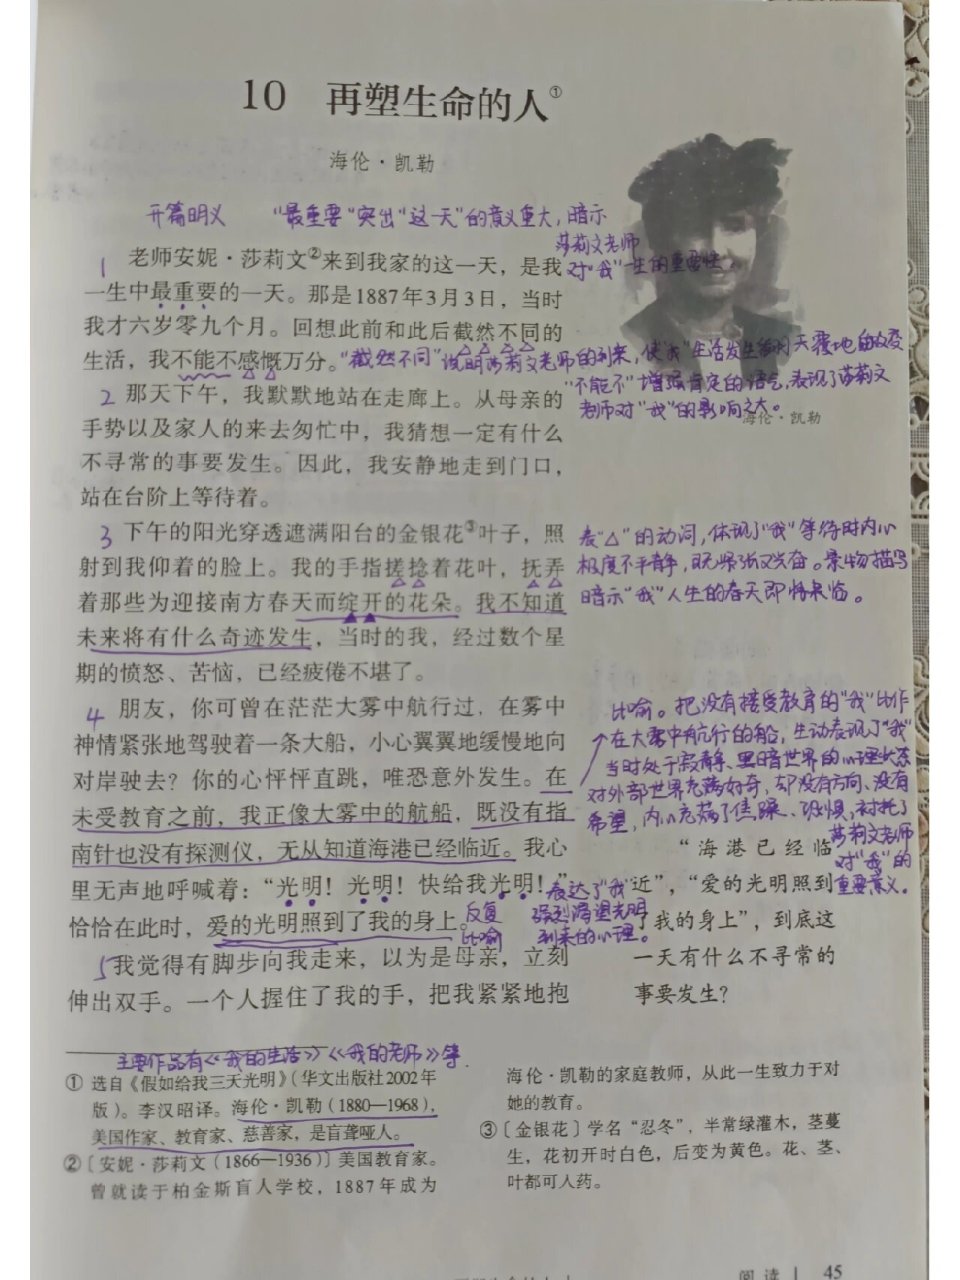 10 再塑生命的人①
海伦·凯勒
开篇明义 “最重要”突出“这一天”的意义重大,暗示
莎莉文老师
对“我”一生的重要性。
1 老师安妮·莎莉文②来到我家的这一天，是我
一生中最重要的一天。那是1887年3月3日，当时
我才六岁零九个月。回想此前和此后截然不同的
生活，我不能不感慨万分。
“截然不同”说明莎莉文老师的到来,使“我”生活发生
天覆地的改变
“不能不”增强肯定的语气,表现了莎莉文
老师对“我”的影响之大。
海伦·凯勒
2 那天下午，我默默地站在走廊上。从母亲的
手势以及家人的来去匆忙中，我猜想一定有什么
不寻常的事要发生。因此，我安静地走到门口，
站在台阶上等待着。
3 下午的阳光穿透遮满阳台的金银花③叶子，照
射到我仰着的脸上。我的手指搓捻着花叶，抚弄
着那些为迎接南方春天而绽开的花朵。我不知道
未来将有什么奇迹发生，当时的我，经过数个星
期的愤怒、苦恼，已经疲倦不堪了。
表“△”的动词,体现了“我”等待时内心
极度不平静,既紧张又兴奋。景物描写
暗示“我”人生的春天即将来临。
4 朋友，你可曾在茫茫大雾中航行过，在雾中
神情紧张地驾驶着一条大船，小心翼翼地缓慢地向
对岸驶去？你的心怦怦直跳，唯恐意外发生。在
未受教育之前，我正像大雾中的航船，既没有指
南针也没有探测仪，无从知道海港已经临近。我心
里无声地呼喊着：“光明！光明！快给我光明！”
恰恰在此时，爱的光明照到了我的身上。
比喻。把没有接受教育的“我”比作
在大雾中航行的船,生动表现了“我”
当时处于寂静、黑暗世界的心理状态
对外部世界充满好奇,却没有方向、没有
希望,内心充满了焦躁、恐惧,衬托了
莎莉文老师
对“我”的
重要意义。
反复
比喻
表达了“我”
强烈渴望光明
到来的心理。
“海港已经临
近”，“爱的光明照到
了我的身上”，到底这
一天有什么不寻常的
事要发生？
5 我觉得有脚步向我走来，以为是母亲，立刻
伸出双手。一个人握住了我的手，把我紧紧地抱
主要作品有《我的生活》《我的老师》等.
① 选自《假如给我三天光明》（华文出版社2002年
版）。李汉昭译。海伦·凯勒（1880—1968），
美国作家、教育家、慈善家，是盲聋哑人。
②〔安妮·莎莉文（1866—1936）〕美国教育家。
曾就读于柏金斯盲人学校，1887年成为
海伦·凯勒的家庭教师，从此一生致力于对
她的教育。
③〔金银花〕学名“忍冬”，半常绿灌木，茎蔓
生，花初开时白色，后变为黄色。花、茎、
叶都可入药。
阅读 | 45